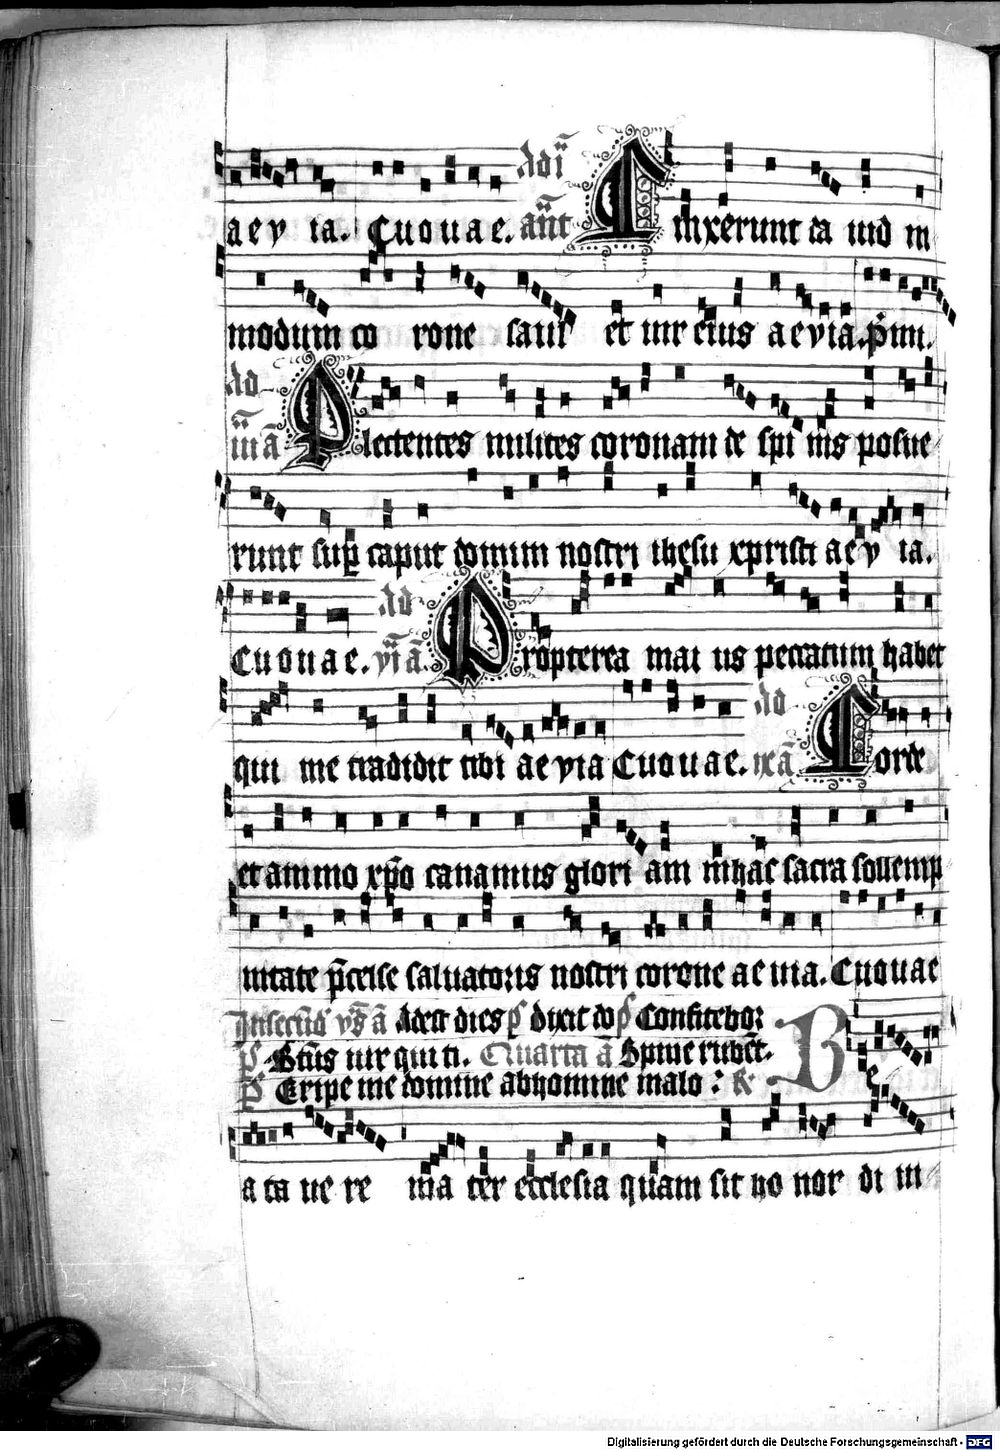 aevia. Cuouae. Adi ant Inxerunt ca iud in
modum co rone saul et iur eius aevia. pm.
Ad iiia Plectentes milites coronam de spinis posue
runt sup caput domini nostri ihesu xpristi aevia.
Cuouae. Ad via. Propterea mai us peccatum habet
qui me tradidit tibi aevia Cuouae. Ad ixa Corde
et animo xpo canamus gloriam in hac sacra sollemp
nitate pcelse saluatoris nostri corone aeuia. Cuouae
In secundis vesperis a Adest dies ps dixit do ps Confitebor
ps Btus uir qui ti. Quarta a Spine rubet.
ps Eripe me domine ab homine malo : R B e
a ta ue re ma ter ecclesia quam sit ho nor di ui
Digitalisierung gefördert durch die Deutsche Forschungsgemeinschaft - DFG